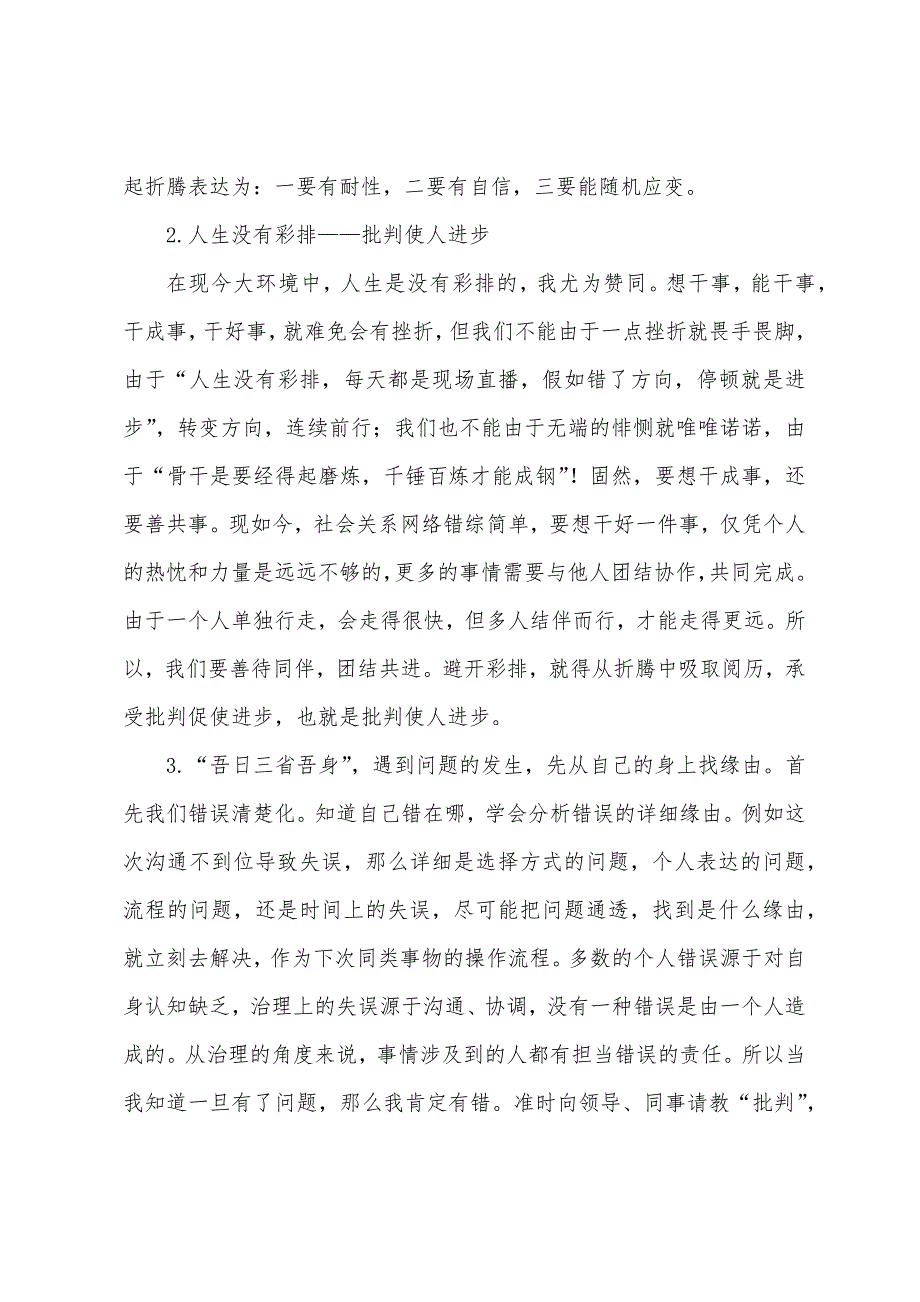 起折腾表达为：一要有耐性，二要有自信，三要能随机应变。
2.人生没有彩排——批判使人进步
在现今大环境中，人生是没有彩排的，我尤为赞同。想干事，能干事，
干成事，干好事，就难免会有挫折，但我们不能由于一点挫折就畏手畏脚，
由于“人生没有彩排，每天都是现场直播，假如错了方向，停顿就是进
步”，转变方向，连续前行；我们也不能由于无端的悱恻就唯唯诺诺，由
于“骨干是要经得起磨炼，千锤百炼才能成钢”！固然，要想干成事，还
要善共事。现如今，社会关系网络错综简单，要想干好一件事，仅凭个人
的热忱和力量是远远不够的，更多的事情需要与他人团结协作，共同完成。
由于一个人单独行走，会走得很快，但多人结伴而行，才能走得更远。所
以，我们要善待同伴，团结共进。避开彩排，就得从折腾中吸取阅历，承
受批判促使进步，也就是批判使人进步。
3.“吾日三省吾身”，遇到问题的发生，先从自己的身上找缘由。首
先我们错误清楚化。知道自己错在哪，学会分析错误的详细缘由。例如这
次沟通不到位导致失误，那么详细是选择方式的问题，个人表达的问题，
流程的问题，还是时间上的失误，尽可能把问题通透，找到是什么缘由，
就立刻去解决，作为下次同类事物的操作流程。多数的个人错误源于对自
身认知缺乏，治理上的失误源于沟通、协调，没有一种错误是由一个人造
成的。从治理的角度来说，事情涉及到的人都有担当错误的责任。所以当
我知道一旦有了问题，那么我肯定有错。准时向领导、同事请教“批判”，